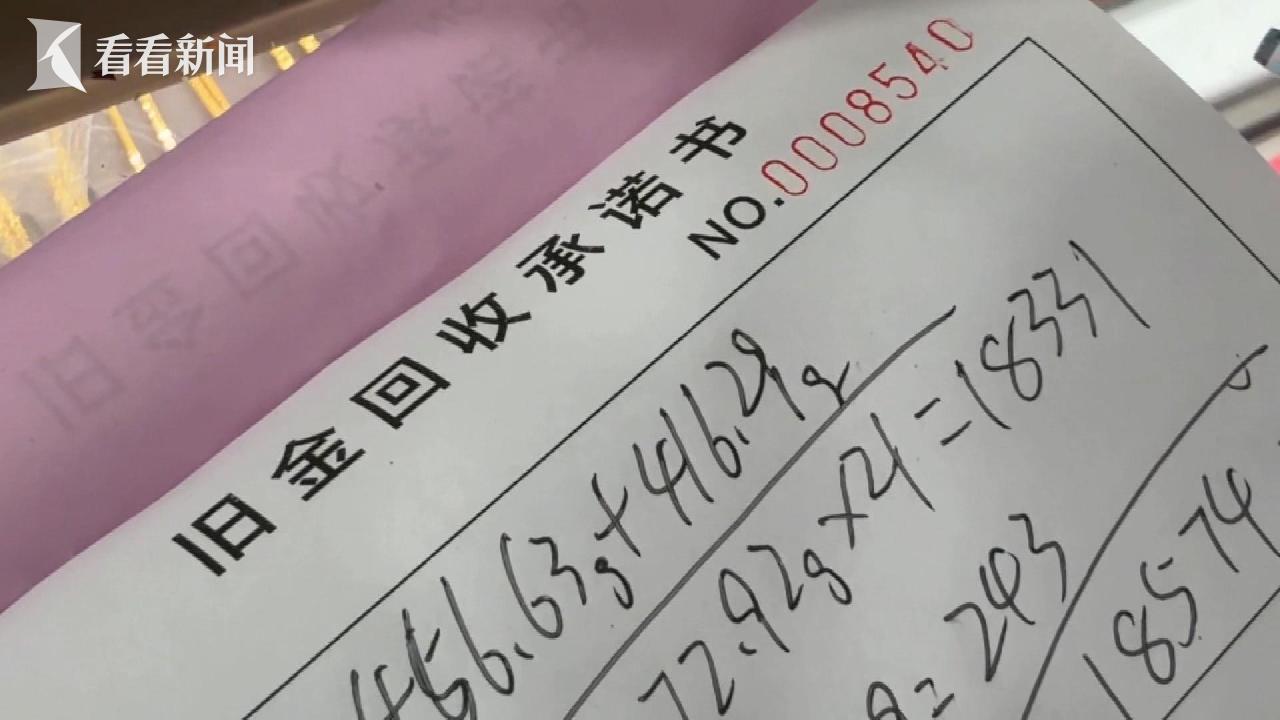 看看新闻
旧金回收承诺书
NO.0008540
456.63g+416.29g
72.92g×21=18331
=243
18574